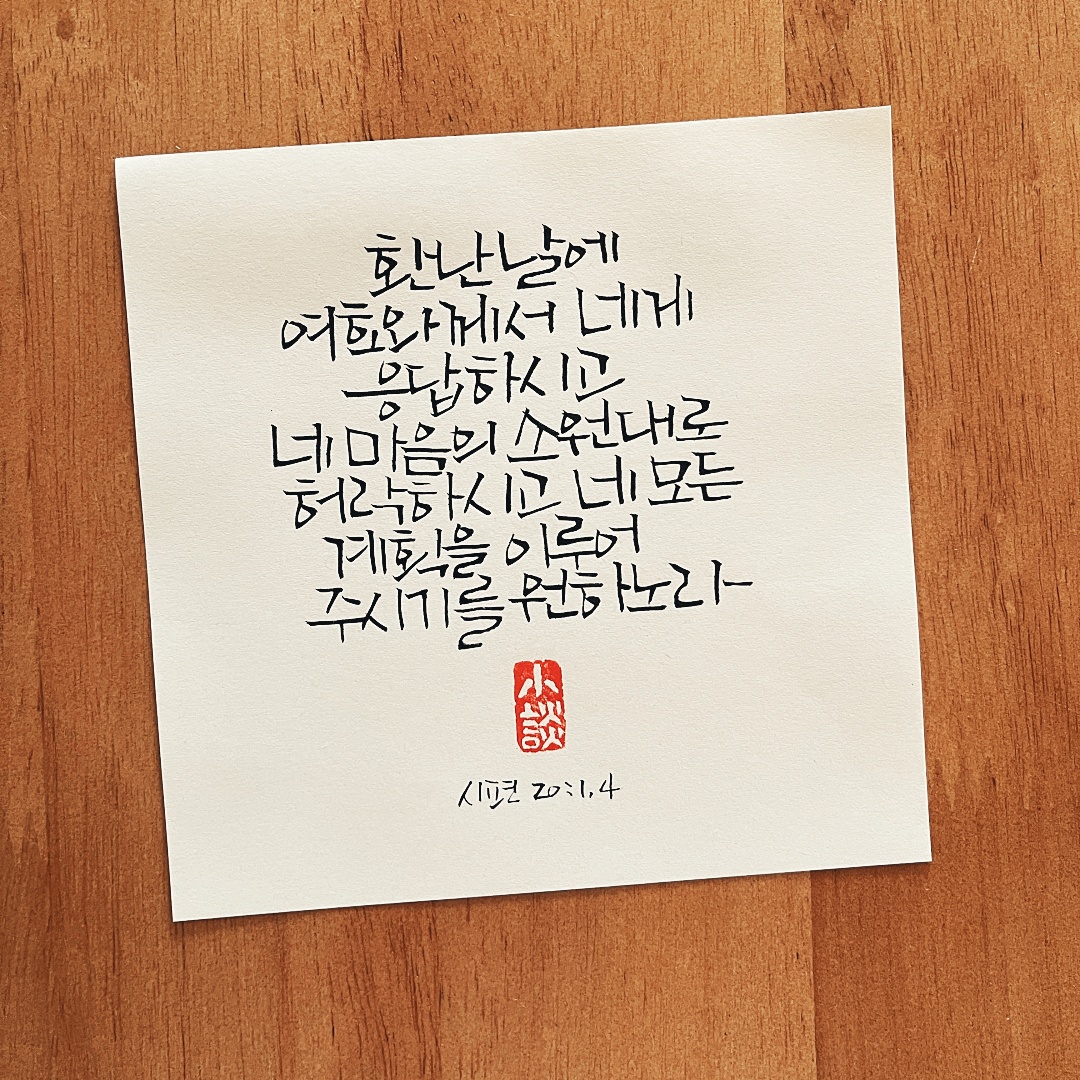 환난날에
여호와께서 네게
응답하시고
네 마음의 소원대로
허락하시고 네 모든
계획을 이루어
주시기를 원하노라
小談
시편 20:1,4